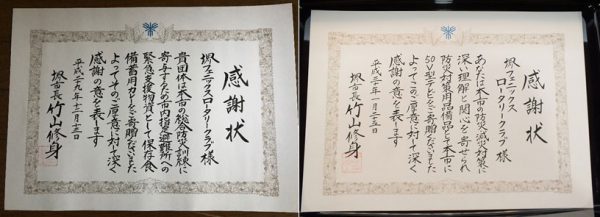 感謝状
堺フェニックスロータリークラブ 様
貴団体は本市の総合防災訓練に
寄与するため市内指定避難所への
緊急支援物資として保存食
備蓄用カレーをご寄贈くださいました
よってそのご厚意に対して深く
感謝の意を表します
平成二九年
堺市長 竹山修身
感謝状
堺フェニックス
ロータリークラブ 様
あなたは本市の防災減災対策に
深い理解と関心を寄せられ
防災対策用品備品として本市に
50V型テレビをご寄贈くださいました
よってこのご厚意に対して深く
感謝の意を表します
平成三一年一月二五日
堺市長 竹山修身